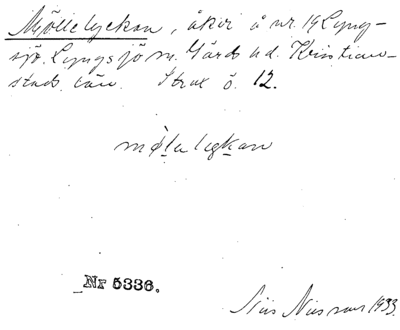 Mjöllelyckan, åkri å nr 14 Lyng-
sjö. Lyngsjö sn. Gärds hd. Kristian-
stads län. Strax ö. 12.
møla lykan
Nr 5336.
Nils Nilsson 1933.